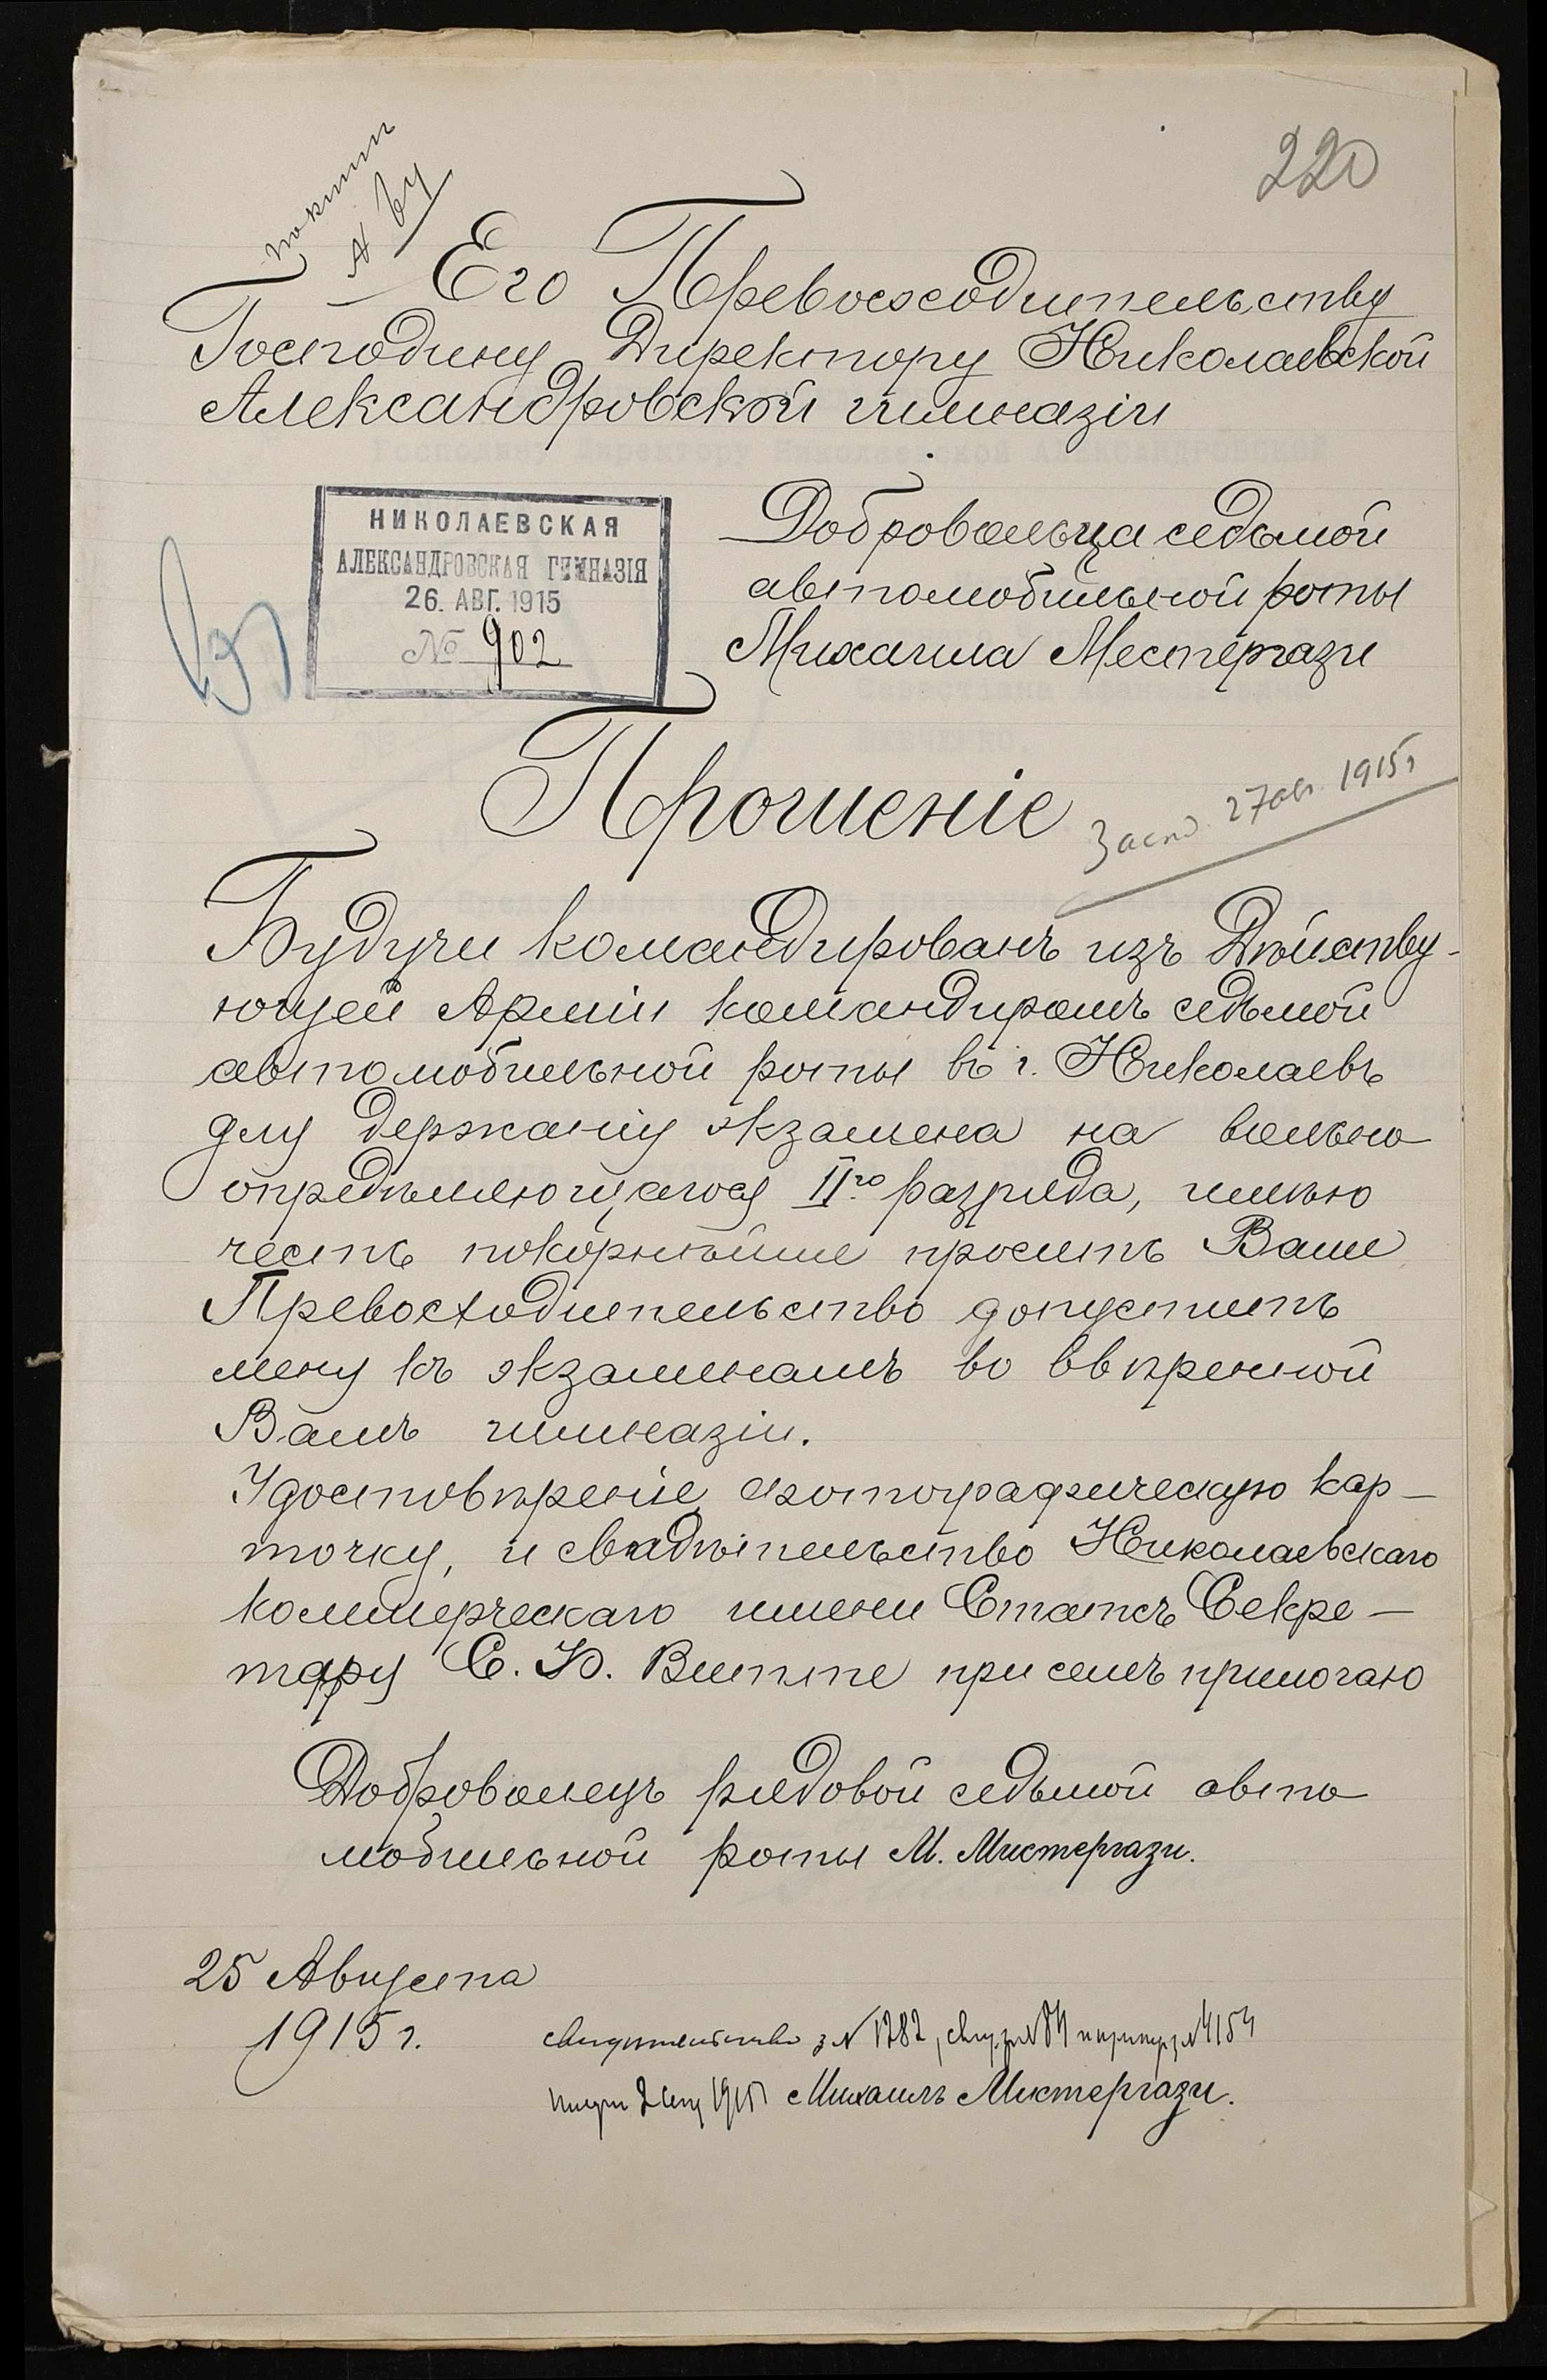 220
Его Превосходительству
Господину Директору Николаевской
Александровской гимназіи
НИКОЛАЕВСКАЯ
АЛЕКСАНДРОВСКАЯ ГИМНАЗІЯ
26. АВГ. 1915
№ 902
Добровольца седьмой
автомобильной роты
Михаила Местергази
Прошеніе
27 авг. 1915 г
Будучи командированъ изъ Дѣйству-
ющей Арміи командиромъ седьмой
автомобильной роты въ г. Николаевъ
для держанія экзамена на вольно
опредѣляющагося IIго разряда, имѣю
честь покорнѣйше просить Ваше
Превосходительство допустить
меня къ экзаменамъ во ввѣренной
Вамъ гимназіи.
Удостовѣреніе, фотографическую кар-
точку, и свидѣтельство Николаевскаго
коммерческаго имени Статсъ Секре-
таря С. Ю. Витте при семъ прилогаю
Доброволецъ рядовой седьмой авто
мобильной роты М. Мистергази.
25 Августа
1915 г.
свидѣтельство з № 1282, № 84 № 4154
1915 Михаилъ Мистергази.